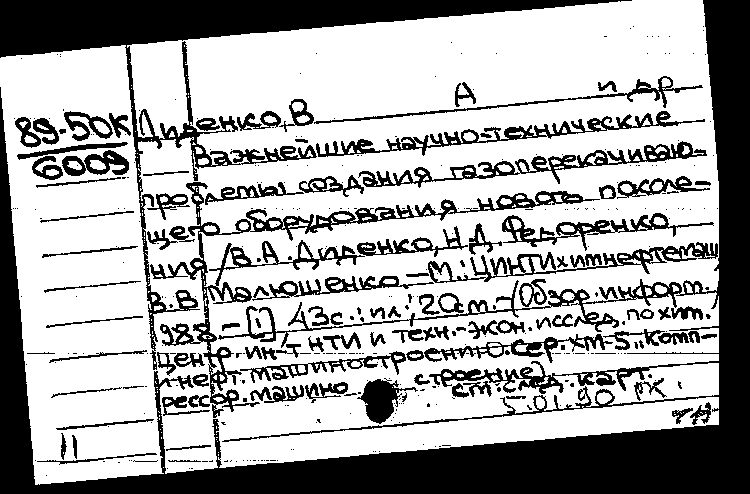 89-50К Диденко, В А и др.
6009 Важнейшие научно-технические
проблемы создания газоперекачиваю-
щего оборудования нового поколе-
ния / В.А. Диденко, Н.Д. Федоренко,
В.В Малюшенко. - М.: ЦИНТИхимнефтемаш
1988. - [1], 43с.: ил.; 20см. - (Обзор. информ. /
центр. ин-т НТИ и техн.-экон. исслед. по хим.
и нефт. машиностроению. сер. ХМ-5 „Комп-
рессор. машино строение)
см. след. карт.
5.01.90 РК.
11